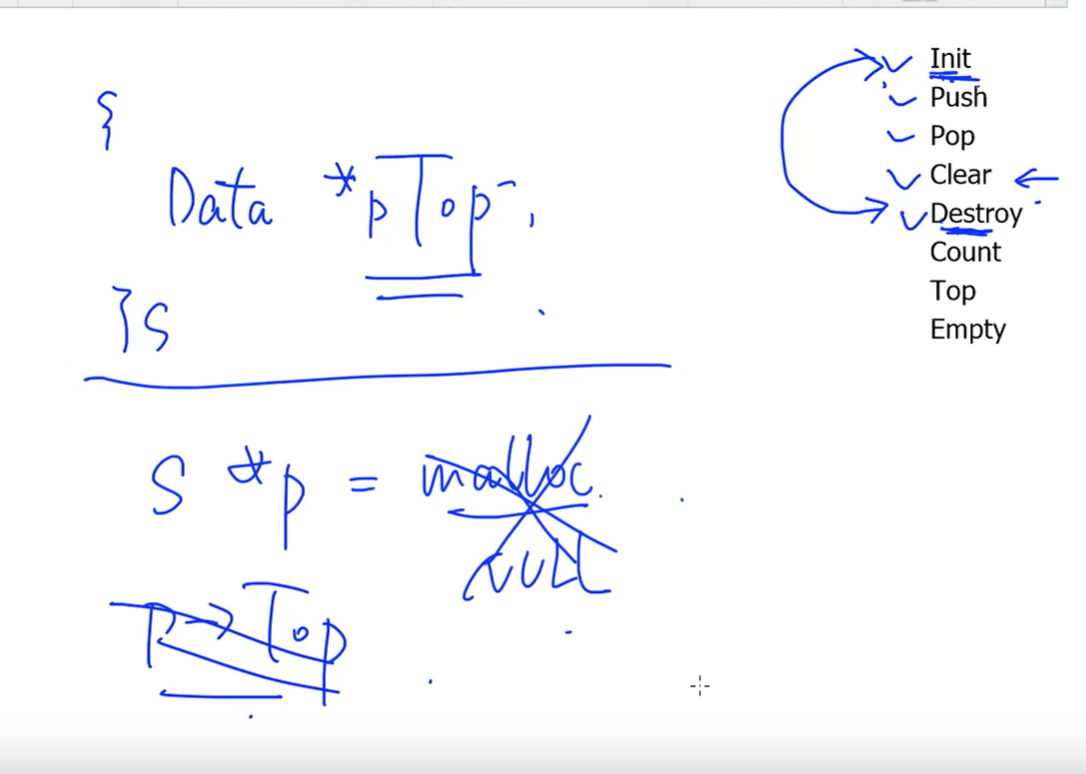 {
Data *pTop;
}S
S *p = malloc
NULL
p→Top
Init
Push
Pop
Clear
Destroy
Count
Top
Empty